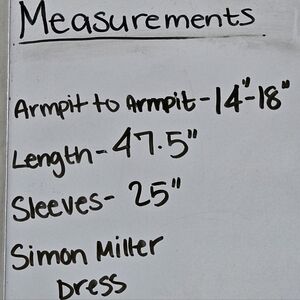 Measurements
Armpit to Armpit - 14"-18"
Length - 47.5"
Sleeves - 25"
Simon Miller
Dress